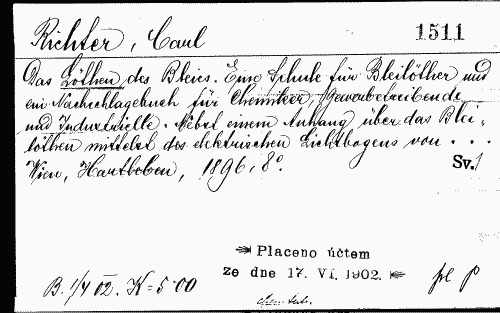 Richter, Carl 1511
Das Löthen des Bleies. Eine Schule für Bleilöther und
ein Nachschlagebuch für Chemiker, Gewerbetreibende
und Industrielle. Nebst einem Anhang über das Blei-
löthen mittelst des elektrischen Lichtbogens von ...
Wien, Hartleben, 1896, 8°. Sv.
Placeno účtem
ze dne 17. VI. 1902.
B. 1/4 02. K = 5·00